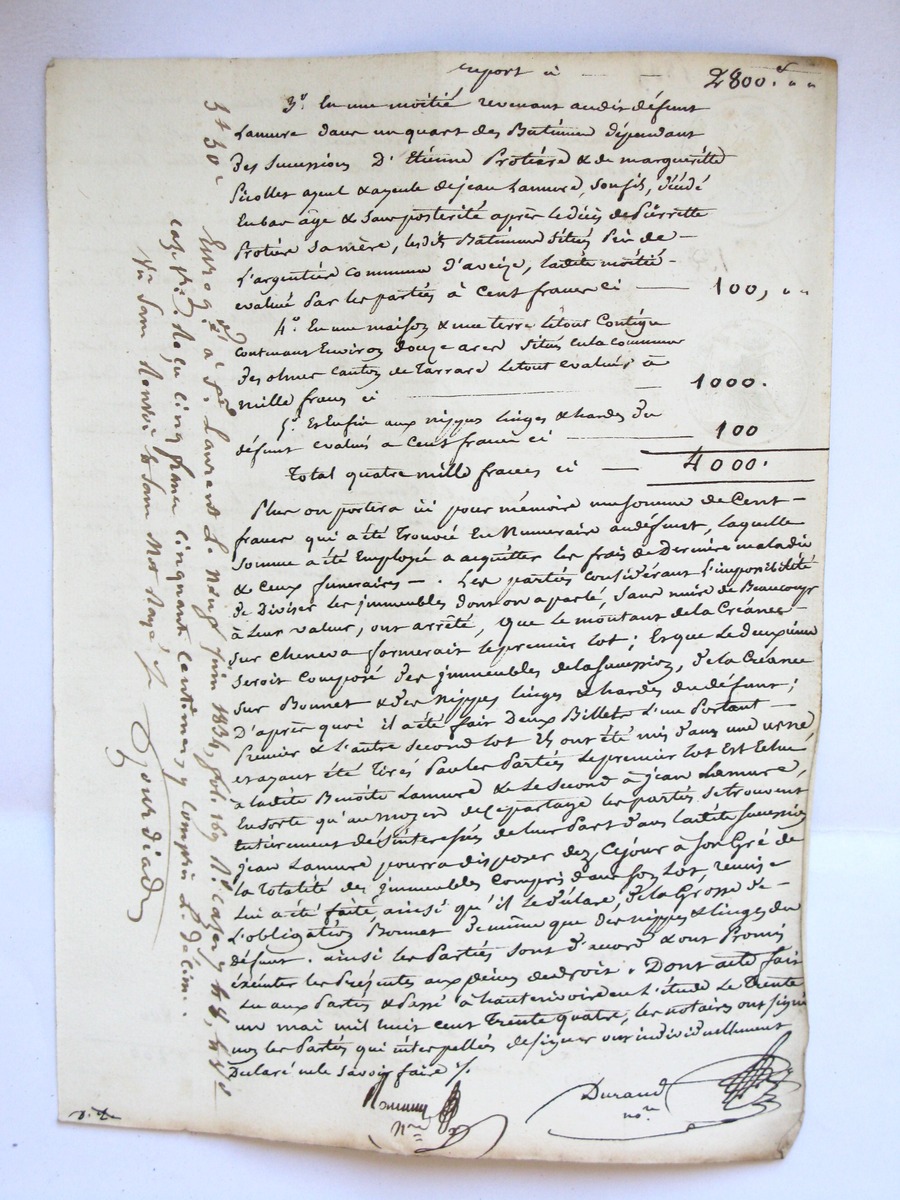 report ci — — 2800.f " "
3° En une moitié revenant audit défunt
Lamure dans un quart des Batimens dépendant
des Successions D'Etiéne Protière & de margueritte
ayeul & ayeule de jean Lamure, son fils, décédé
En bas âge & Sans postérité après le décès de Pierrette
Protière sa mère, lesdits Batimens Situés Près de —
L'argentière commune d'aveize, ladite moitié —
évaluée Par les parties à Cent francs ci — 100, " "
4° En une maison & une terre le tout Contigu
contenant Environ douze ares Situés en la commune
des olmes canton de Tarrare le tout évalués à
mille francs ci — — 1000.
5° Et Enfin aux nippes linges & hardes du
défunt évalués a Cent francs ci — 100
Total quatre mille francs ci — 4000.
Plus on portera ici pour mémoire une somme de Cent —
francs qui a été Trouvée En Numeraire au défunt, laquelle
Somme a été Employé a acquitter les frais de Dernière maladie
& ceux funeraires — . Les parties considérant L'impossibilité
de Diviser les immeubles dont on a parlé, Sans nuire de Beaucoup
à Leur valeur, ont arrêté, Que le montant de la Créance —
Sur formerait le premier lot ; Et que Le deuxième
Seroit Composé des immeubles de la Succession, de la Créance
Sur Bonnet & des Nippes linges & hardes du défunt ;
D'après quoi il a été fait Deux Billets L'un Portant —
Premier & L'autre Second lot Ils ont été mis dans une urne
et ayant été Tirés Par les Parties Le premier lot Est Echu
à ladite Benoîte Lamure & Le Second à jean Lamure,
Ensorte qu'au moyen de ce partage les parties se trouvent
Entièrement désinteressées de leur Part dans ladite Succession
jean Lamure pourra disposer dez Cejour à Son Gré de
la Totalité des immeubles Compris dans son Lot, remise
Lui a été faite, ainsi qu'il le déclare, de la Grosse de —
L'obligation Bonnet de même que des nippes & linges du
défunt. ainsi les Parties Sont d'accord & ont Promis
exécuter les Présentes aux peines de droit. Dont acte fait
Lu aux Parties & Passé à en L'étude Le Trente
un mai mil huit cent Trente quatre, les notaires ont signé
non les Parties qui interpellées de signer ont individuellement
Déclaré ne le Savoir faire ./.
Nre
Durand
nore
3f 30c
Enregistré à St. Laurent Le Neuf juin 1834, fol. 169 Ro. cazes 3, 4,
Reçu cinq francs cinquante centimes, y compris Le décime.
Jourdiade